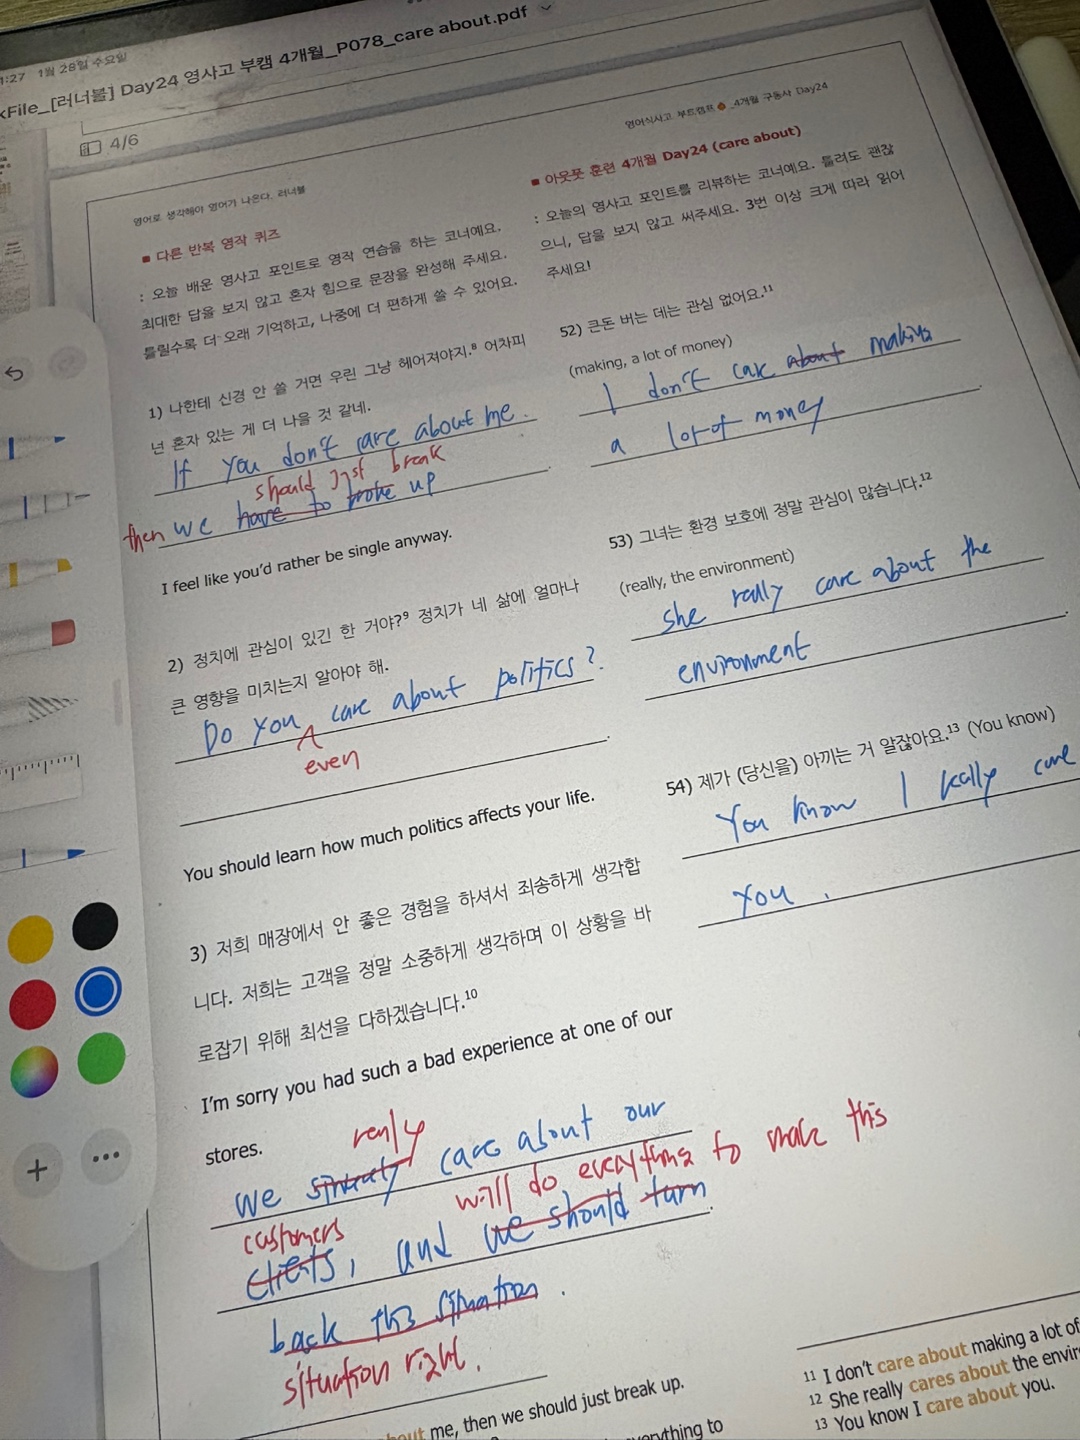 1:27 1월 28일 수요일
kFile_[러너블] Day24 영사고 부캠 4개월_P078_care about.pdf
4/6
영어로 생각해야 영어가 나온다. 러너블
■ 다른 반복 영작 퀴즈
: 오늘 배운 영사고 포인트로 영작 연습을 하는 코너예요.
최대한 답을 보지 않고 혼자 힘으로 문장을 완성해 주세요.
틀릴수록 더 오래 기억하고, 나중에 더 편하게 쓸 수 있어요.
1) 나한테 신경 안 쓸 거면 우린 그냥 헤어져야지.⁸ 어차피
넌 혼자 있는 게 더 나을 것 같네.
If you don't care about me.
should just break
then we have to broke up
I feel like you'd rather be single anyway.
2) 정치에 관심이 있긴 한 거야?⁹ 정치가 네 삶에 얼마나
큰 영향을 미치는지 알아야 해.
Do you care about politics?
even
You should learn how much politics affects your life.
3) 저희 매장에서 안 좋은 경험을 하셔서 죄송하게 생각합
니다. 저희는 고객을 정말 소중하게 생각하며 이 상황을 바
로잡기 위해 최선을 다하겠습니다.¹⁰
I'm sorry you had such a bad experience at one of our
stores.
really
we care about our
customers will do everything to make this
clients, and we should turn
back this situation.
situation right.
about me, then we should just break up.
everything to
영어식사고 부트캠프 _4개월 구동사 Day24
■ 아웃풋 훈련 4개월 Day24 (care about)
: 오늘의 영사고 포인트를 리뷰하는 코너예요. 틀려도 괜찮
으니, 답을 보지 않고 써주세요. 3번 이상 크게 따라 읽어
주세요!
52) 큰돈 버는 데는 관심 없어요.¹¹
(making, a lot of money)
I don't care about making
a lot of money
53) 그녀는 환경 보호에 정말 관심이 많습니다.¹²
(really, the environment)
she really care about the
environment
54) 제가 (당신을) 아끼는 거 알잖아요.¹³ (You know)
You know I really care
you.
¹¹ I don't care about making a lot of
¹² She really cares about the envir
¹³ You know I care about you.